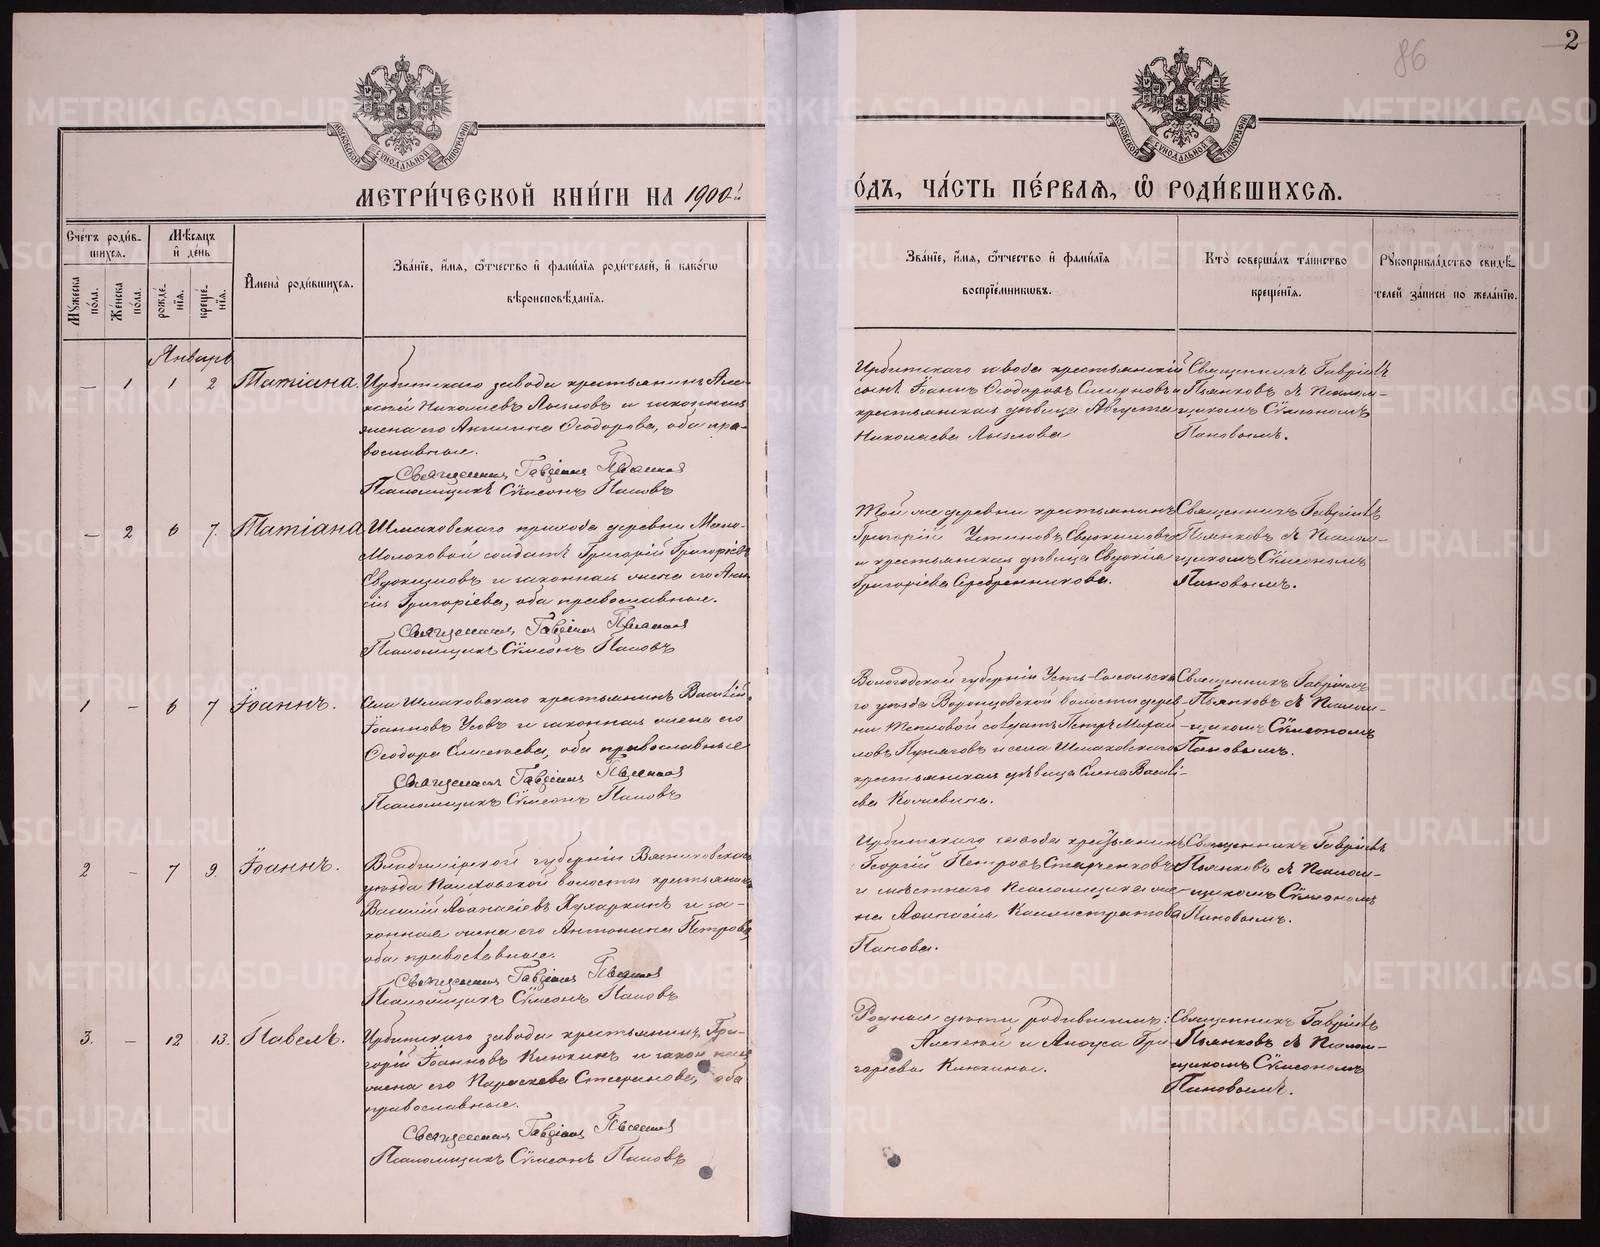 2
86
МОСКОВСКОЙ СѴНОДАЛЬНОЙ ТИПОГРАФІИ
МОСКОВСКОЙ СѴНОДАЛЬНОЙ ТИПОГРАФІИ
МЕТРИ́ЧЕСКОЙ КНИ́ГИ НА 1900й
ГО́ДЪ, ЧА́СТЬ ПЕ́РВАЯ, Ѡ РОДИ́ВШИХСЯ.
Сче́тъ роди́в-
шихся.
Мѣ́сяцъ
и де́нь
Мꙋ́жеска по́ла.
Же́нска по́ла.
рожде́-
нїя.
креще́-
нїя.
И҆мена̀ роди́вшихся.
Зва́нїе, и҆́мя, ѻ҆́тчество и҆ фами́лїя роди́телей, и҆ како́гѡ
вѣроисповѣ́данїя.
Зва́нїе, и҆́мя, ѻ҆́тчество и҆ фами́лїя
воспрїе́мникѡвъ.
Кто̀ соверша́лъ та́инство
креще́нїя.
Рꙋкоприкла́дство свидѣ́-
телей за́писи по жела́нїю.
Январь
— 1 1 2 Татіана.
Ирбитскаго завода крестьянинъ Але-
ксѣй Николаевъ Лызловъ и законная
жена его Ангелина Ѳеодорова, оба пра-
вославные.
Священникъ Гавріилъ Пьянковъ
Псаломщикъ Сѵмеонъ Пановъ
Ирбитскаго завода крестьянскій
сынъ Іоаннъ Ѳеодоровъ Смирновъ и
крестьянская дѣвица Августа
Николаева Лызлова
Священникъ Гавріилъ
Пьянковъ съ Псалом-
щикомъ Сѵмеономъ
Пановымъ.
— 2 6 7. Татіана
Шмаковскаго прихода деревни Мало-
Молоковой солдатъ Григорій Григоріевъ
Евдокимовъ и законная жена его Ани-
сія Григоріева, оба православные.
Священникъ Гавріилъ Пьянковъ
Псаломщикъ Сѵмеонъ Пановъ
Той же деревни крестьянинъ
Григорій Устиновъ Евдокимовъ
и крестьянская дѣвица Евдокія
Григоріева Серебренникова.
Священникъ Гавріилъ
Пьянковъ съ Псалом-
щикомъ Сѵмеономъ
Пановымъ.
1 — 6 7 Іоаннъ.
Села Шмаковскаго крестьянинъ Василій
Іоанновъ Усовъ и законная жена его
Ѳеодора Елисѣева, оба православные
Священникъ Гавріилъ Пьянковъ
Псаломщикъ Сѵмеонъ Пановъ
Вологодской губерніи Усть-Сысольска-
го уѣзда Воронцовской волости дерев-
ни солдатъ Петръ Михай-
ловъ и села Шмаковскаго
крестьянская дѣвица Елена Василі-
ева
Священникъ Гавріилъ
Пьянковъ съ Псалом-
щикомъ Сѵмеономъ
Пановымъ.
2 — 7 9. Іоаннъ.
Владимірской губерніи Вязниковскаго
уѣзда волости крестьянинъ
Василій Аѳанасіевъ Кухаркинъ и за-
конная жена его Антонина Петрова,
оба православные.
Священникъ Гавріилъ Пьянковъ
Псаломщикъ Сѵмеонъ Пановъ
Ирбитскаго завода крестьянинъ
Георгій Петровъ Старченковъ
и мѣстнаго Псаломщика же-
на Аѳанасія Каллистратова
Панова.
Священникъ Гавріилъ
Пьянковъ съ Псалом-
щикомъ Сѵмеономъ
Пановымъ.
3. — 12 13. Павелъ.
Ирбитскаго завода крестьянинъ Гри-
горій Іоанновъ Клюкинъ и законная
жена его Параскева Стефанова, оба
православные.
Священникъ Гавріилъ Пьянковъ
Псаломщикъ Сѵмеонъ Пановъ
Родные дѣти родившимъ:
Алексѣй и Гри-
горіевы Клюкины.
Священникъ Гавріилъ
Пьянковъ съ Псалом-
щикомъ Сѵмеономъ
Пановымъ.
METRIKI.GASO-URAL.RU